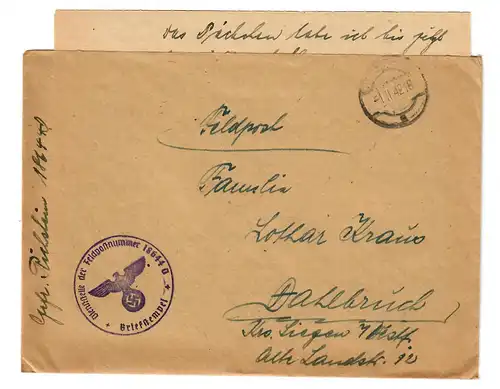 das Päckchen habe ich bis jetzt
42.18
Feldpost
Familie
Lothar Kraus
Dahlbruch
Krs. Siegen / Westf.
Alte Landstr. 12
Dienststelle der Feldpostnummer 18644 D
Briefstempel
Gefr.